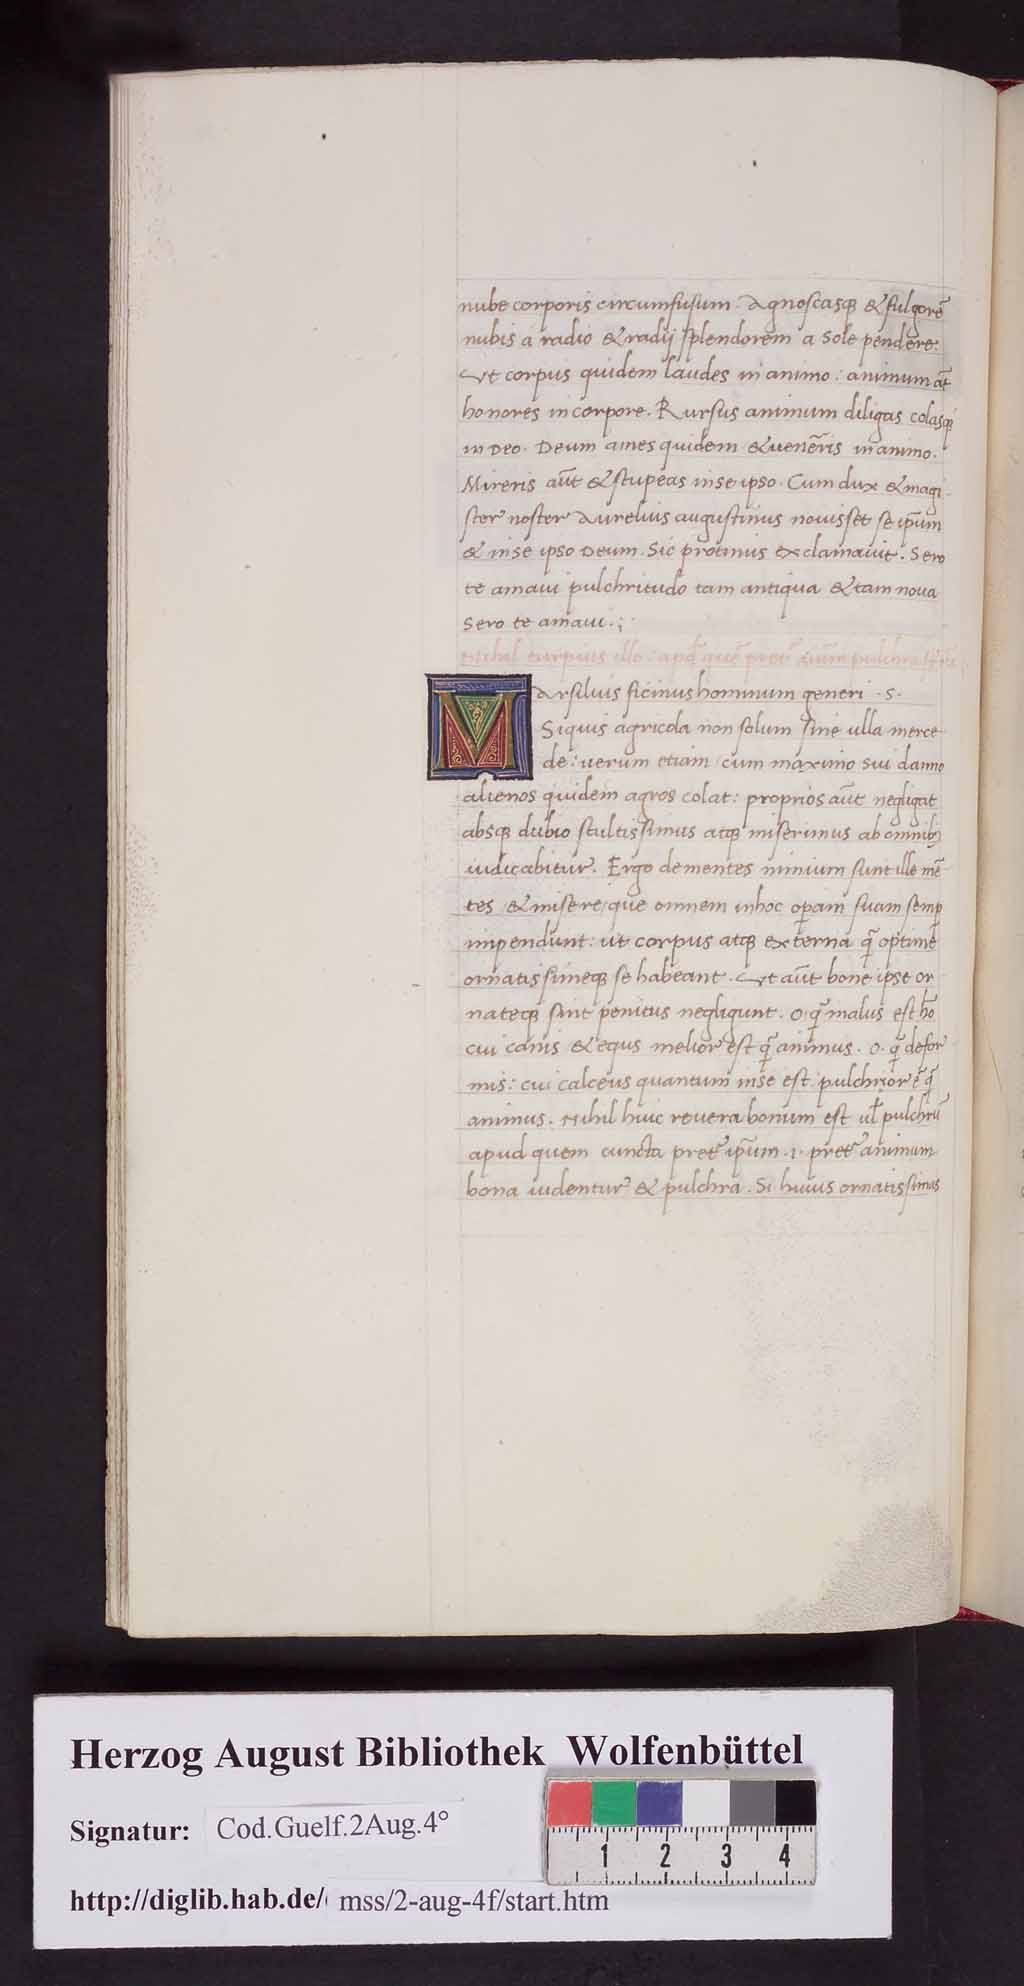 nube corporis circumfusum. Agnoscasq; & fulgorē
nubis a radio & radij splendorem a Sole pendere:
Vt corpus quidem laudes in animo: animum aūt
honores in corpore. Rursus animum diligas colasq;
in Deo. Deum ames quidem & uenēris in animo.
Mireris aūt & stupeas in se ipso. Cum dux & magi
ster noster Aurelius augustinus nouisset se ip̄um
& in se ipso Deum. Sic protinus exclamauit. Sero
te amaui pulchritudo tam antiqua & tam noua
Sero te amaui.;
Nihil turpius illo: apd̄ quē pret̄ aīum pulchra
MArsilius ficinus hominum generi .S.
Siquis agricola non solum sine ulla merce
de: uerum etiam cum maximo sui damno
alienos quidem agros colat: proprios aūt negligat
absq; dubio stultissimus atq; miserimus ab omnib;
iudicabitur. Ergo dementes nimium sunt ille mē
tes & misere: que omnem in hoc op̄am suam semp̄
impendunt: ut corpus atq; externa q̄ optime
ornatissimeq; se habeant. Vt aūt bone ipse or
nateq; sint penitus negligunt. O q̄ malus est hō
cui canis & equs melior est q̄ animus. O. q̄ defor
mis: cui calceus quantum in se est pulchrior ē q̄
animus. Nihil huic reuera bonum est ul̄ pulchrū
apud quem cuncta pret̄ ip̄um .i. pret̄ animum
bona uidentur & pulchra. Si huius ornatissimas
Herzog August Bibliothek Wolfenbüttel
Signatur: Cod.Guelf.2Aug.4°
1 2 3 4
http://diglib.hab.de/ mss/2-aug-4f/start.htm